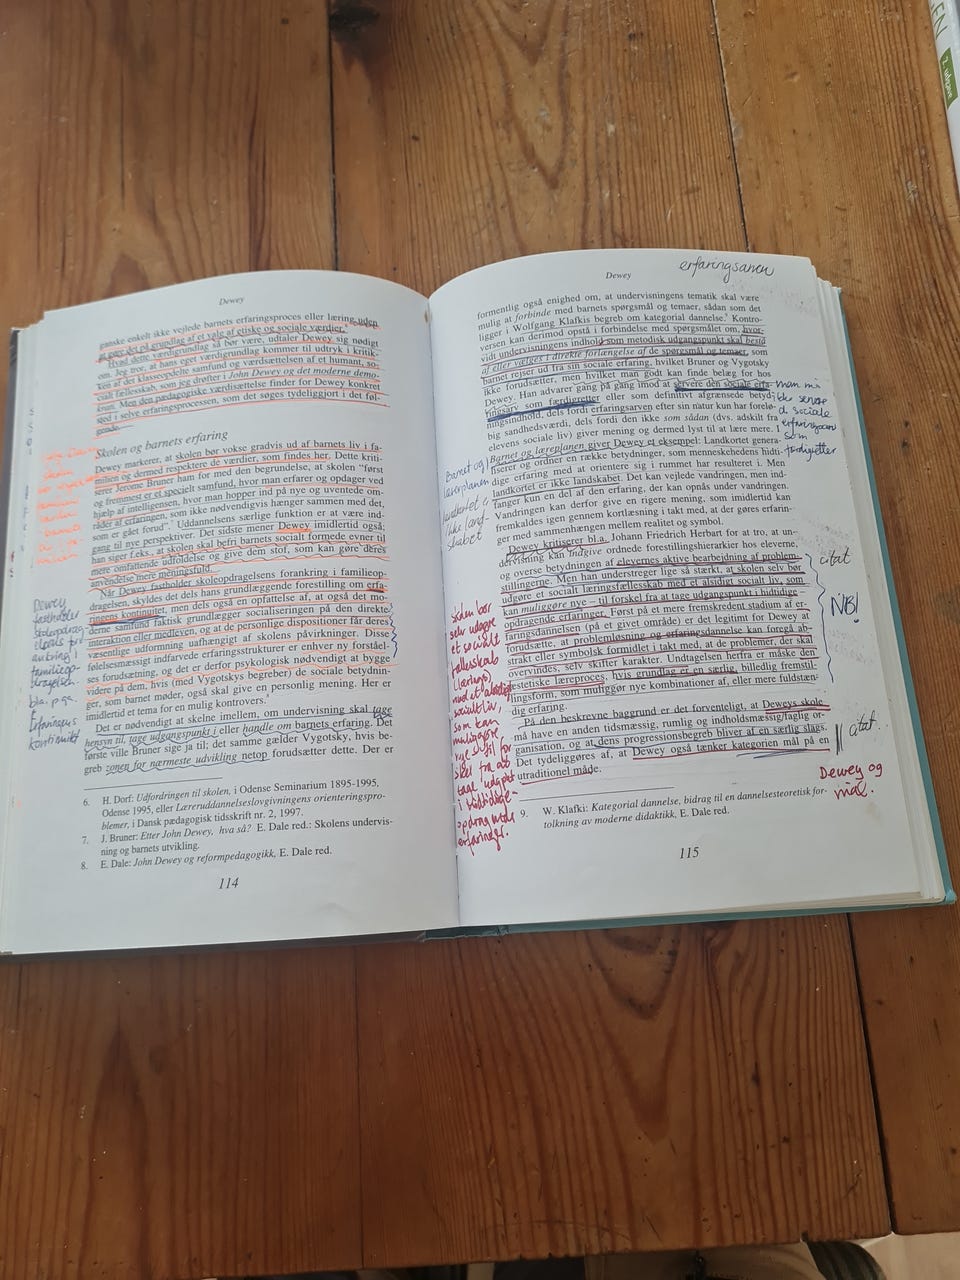 EN
2. udgave
Dewey
ganske enkelt ikke vejlede barnets erfaringsproces eller læring uden
at gøre det på grundlag af et valg af etiske og sociale værdier.6
Hvad dette værdigrundlag så bør være, udtaler Dewey sig nødigt
om. Jeg tror, at hans eget værdigrundlag kommer til udtryk i kritik-
ken af det klasseopdelte samfund og værdsættelsen af et humant, so-
cialt fællesskab, som jeg drøfter i John Dewey og det moderne demo-
krati. Men den pædagogiske værdisættelse finder for Dewey konkret
sted i selve erfaringsprocessen, som det søges tydeliggjort i det føl-
gende.
Skolen og barnets erfaring
Dewey markerer, at skolen bør vokse gradvis ud af barnets liv i fa-
milien og dermed respektere de værdier, som findes her. Dette kriti-
serer Jerome Bruner ham for med den begrundelse, at skolen "først
og fremmest er et specielt samfund, hvor man erfarer og opdager ved
hjælp af intelligensen, hvor man hopper ind på nye og uventede om-
råder af erfaringen, som ikke nødvendigvis hænger sammen med det,
som er gået forud".7 Uddannelsens særlige funktion er at være ind-
gang til nye perspektiver. Det sidste mener Dewey imidlertid også;
han siger f.eks., at skolen skal befri barnets socialt formede evner til
mere omfattende udfoldelse og give dem stof, som kan gøre deres
anvendelse mere meningsfuld.
Når Dewey fastholder skoleopdragelsens forankring i familieop-
dragelsen, skyldes det dels hans grundlæggende forestilling om erfa-
ringens kontinuitet, men dels også en opfattelse af, at også det mo-
derne samfund faktisk grundlægger socialiseringen på den direkte
interaktion eller medleven, og at de personlige dispositioner får deres
væsentlige udformning uafhængigt af skolens påvirkninger. Disse
følelsesmæssigt indfarvede erfaringsstrukturer er enhver ny forståel-
ses forudsætning, og det er derfor psykologisk nødvendigt at bygge
videre på dem, hvis (med Vygotskys begreber) de sociale betydnin-
ger, som barnet møder, også skal give en personlig mening. Her er
imidlertid et tema for en mulig kontrovers.8
Det er nødvendigt at skelne imellem, om undervisning skal tage
hensyn til, tage udgangspunkt i eller handle om barnets erfaring. Det
første ville Bruner sige ja til; det samme gælder Vygotsky, hvis be-
greb zonen for nærmeste udvikling netop forudsætter dette. Der er
Dewey
fastholder
skoleopdrag
familieop-
dragelsen
bla. p.ga.
Erfaringens
kontinuitet
6. H. Dorf: Udfordringen til skolen, i Odense Seminarium 1895-1995,
Odense 1995, eller Læreruddannelseslovgivningens orienteringspro-
blemer, i Dansk pædagogisk tidsskrift nr. 2, 1997.
7. J. Bruner: Etter John Dewey, hva så? E. Dale red.: Skolens undervis-
ning og barnets utvikling.
8. E. Dale: John Dewey og reformpedagogikk, E. Dale red.
114
Dewey
erfaringsarven
formentlig også enighed om, at undervisningens tematik skal være
mulig at forbinde med barnets spørgsmål og temaer, sådan som det
ligger i Wolfgang Klafkis begreb om kategorial dannelse.9 Kontro-
versen kan derimod opstå i forbindelse med spørgsmålet om, hvor-
vidt undervisningens indhold som metodisk udgangspunkt skal bestå
af eller vælges i direkte forlængelse af de spørgsmål og temaer, som
barnet rejser ud fra sin sociale erfaring, hvilket Bruner og Vygotsky
ikke forudsætter, men hvilket man godt kan finde belæg for hos
Dewey. Han advarer gang på gang imod at servere den sociale erfa-
ringsarv som færdigretter eller som definitivt afgrænsede betyd-
ningsindhold, dels fordi erfaringsarven efter sin natur kun har forelø-
big sandhedsværdi, dels fordi den ikke som sådan (dvs. adskilt fra
elevens sociale liv) giver mening og dermed lyst til at lære mere. I
Barnet og læreplanen giver Dewey et eksempel: Landkortet genera-
liserer og ordner en række betydninger, som menneskehedens hidti-
dige erfaring med at orientere sig i rummet har resulteret i. Men
landkortet er ikke landskabet. Det kan vejlede vandringen, men ind-
fanger kun en del af den erfaring, der kan opnås under vandringen.
Vandringen kan derfor give en rigere mening, som imidlertid kan
fremkaldes igen gennem kortlæsning i takt med, at der gøres erfarin-
ger med sammenhængen mellem realitet og symbol.
Dewey kritiserer bl.a. Johann Friedrich Herbart for at tro, at un-
dervisning kan indgive ordnede forestillingshierarkier hos eleverne,
og overse betydningen af elevernes aktive bearbejdning af problem-
stillingerne. Men han understreger lige så stærkt, at skolen selv bør
udgøre et socialt læringsfællesskab med et alsidigt socialt liv, som
kan muliggøre nye – til forskel fra at tage udgangspunkt i hidtidige –
opdragende erfaringer. Først på et mere fremskredent stadium af er-
faringsdannelsen (på et givet område) er det legitimt for Dewey at
forudsætte, at problemløsning og erfaringsdannelse kan foregå ab-
strakt eller symbolsk formidlet i takt med, at de problemer, der skal
overvindes, selv skifter karakter. Undtagelsen herfra er måske den
æstetiske læreproces, hvis grundlag er en særlig, billedlig fremstil-
lingsform, som muliggør nye kombinationer af, eller mere fuldstæn-
dig erfaring.
På den beskrevne baggrund er det forventeligt, at Deweys skole
må have en anden tidsmæssig, rumlig og indholdsmæssig/faglig or-
ganisation, og at dens progressionsbegreb bliver af en særlig slags.
Det tydeliggøres af, at Dewey også tænker kategorien mål på en
utraditionel måde.
man må
ikke servere
d sociale
erfaringsarv
som
færdigretter
Barnet og
læreplanen
landkort er
ikke land-
skabet
skolen bør
selv udgøre
et socialt
fællesskab
(læring)
med et alsidigt
socialt liv,
som kan
muliggøre
nye til for
skel fra at
tage udgpkt
i hidtidige
opdragende
erfaringer.
citat
NB!
citat.
Dewey og
mål.
9. W. Klafki: Kategorial dannelse, bidrag til en dannelsesteoretisk for-
tolkning av moderne didaktikk, E. Dale red.
115